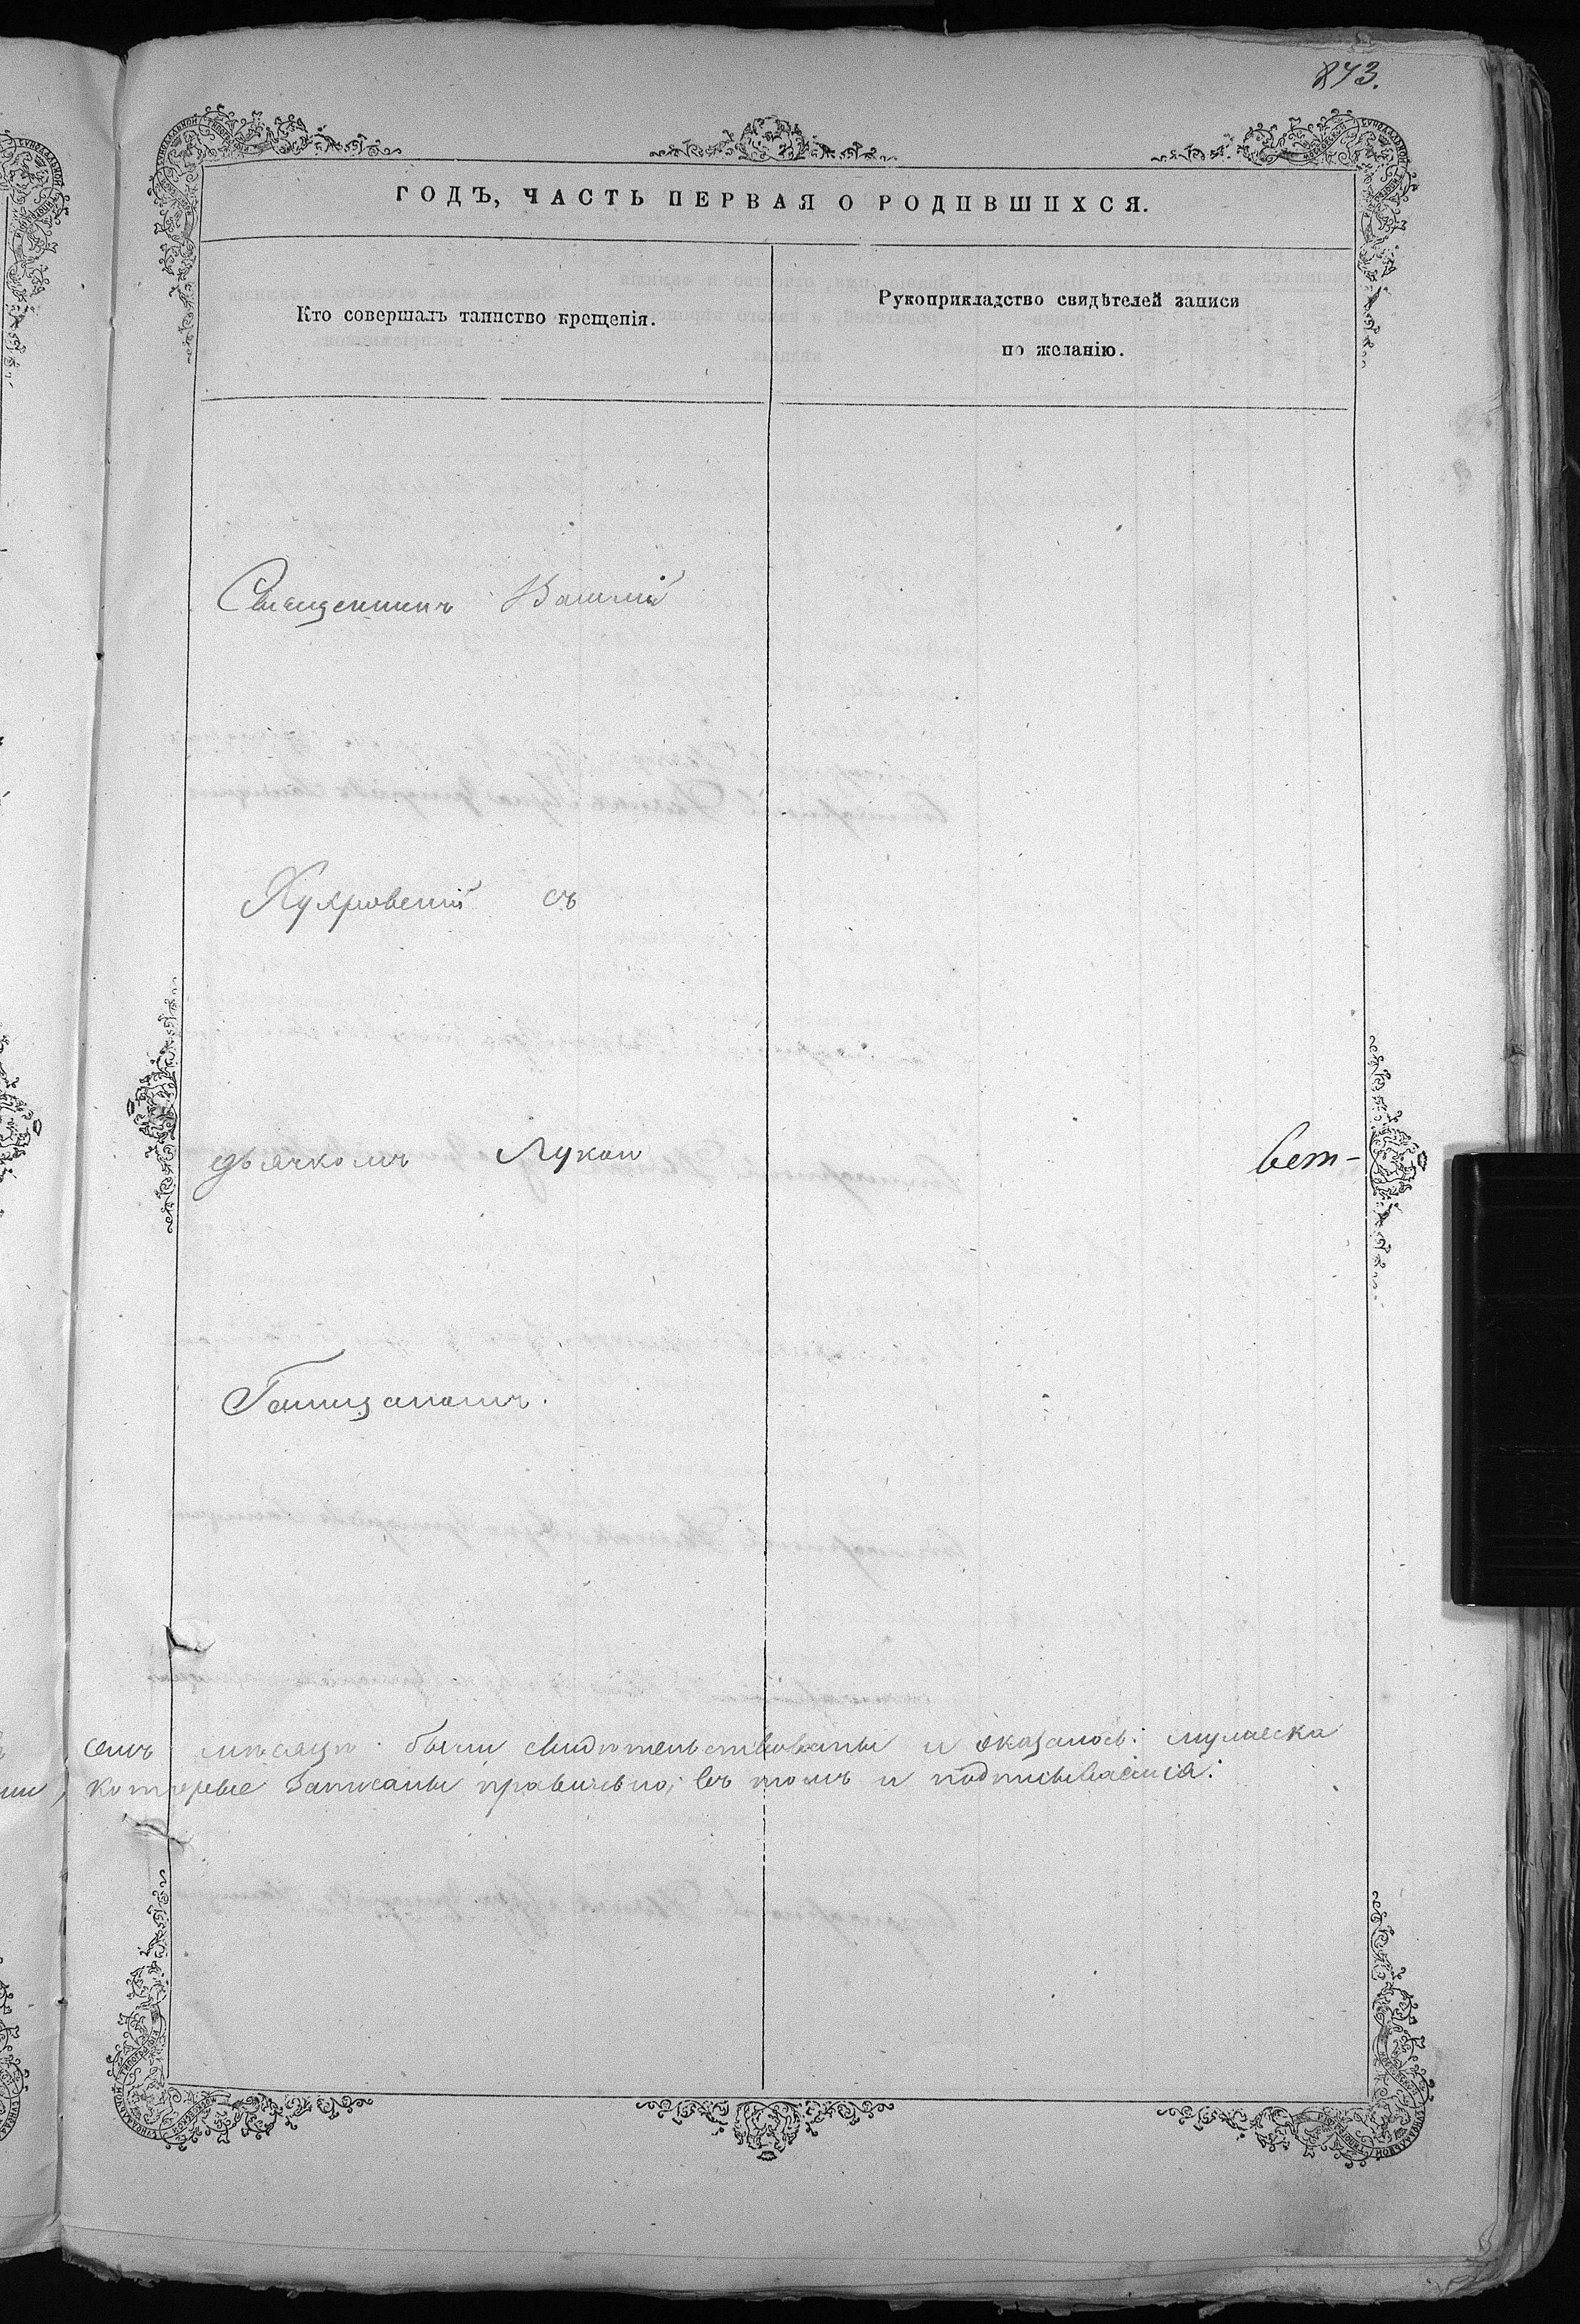 873.
ГОДЪ, ЧАСТЬ ПЕРВАЯ О РОДИВШИХСЯ.
Кто совершалъ таинство крещенія.
Рукоприкладство свидѣтелей записи
по желанію.
Священникъ Василій
съ
дьячкомъ Лукою
вет-
семъ мѣсяцѣ были свидѣтельствованы и оказалось: мужеска
которые записаны правильно; въ томъ и подписываемся: